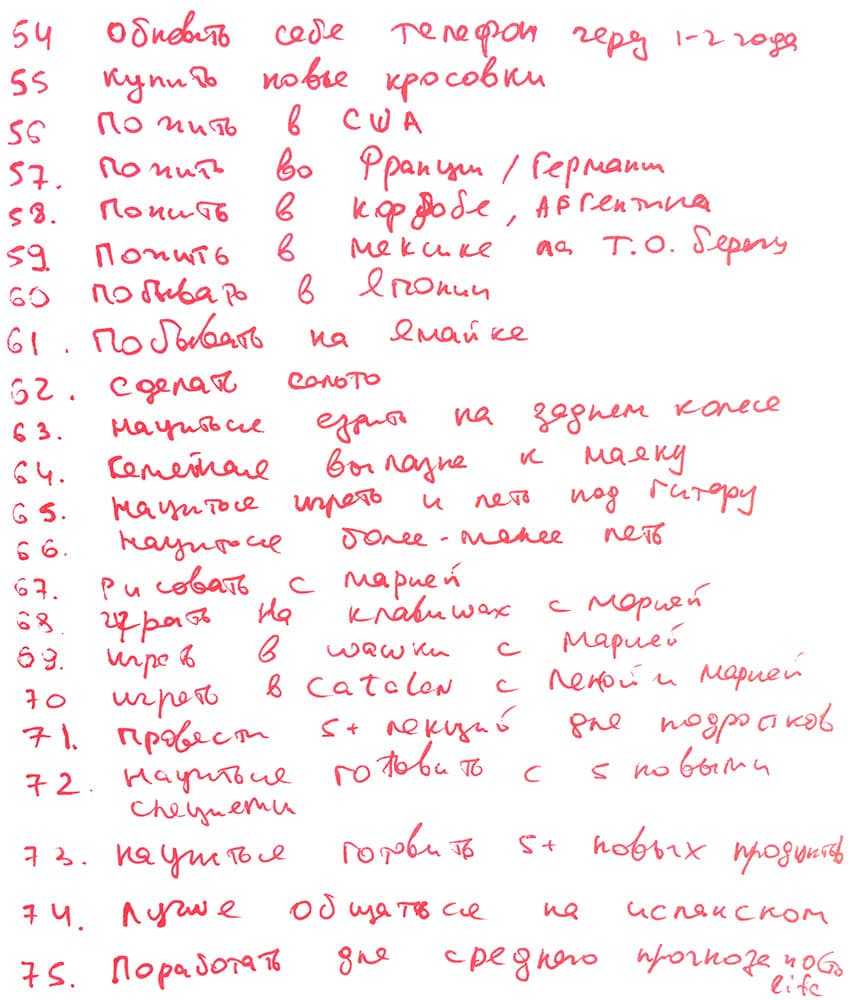 54 Обновить себе телефон через 1-2 года
55 купить новые кросовки
56 Пожить в США
57. Пожить во Франции / Германии
58. Пожить в кордобе, Аргентина
59. Пожить в Мексике на Т.О. берегу
60 Побывать в Японии
61. Побывать на Ямайке
62. Сделать сольто
63. Научиться ездить на заднем колесе
64. Семейная вылазка к маяку
65. Научиться играть и петь под гитару
66. Научиться более-менее петь
67. Рисовать с Марией
68. Играть на клавишах с Марией
69. играть в шашки с Марией
70 играть в Catalan с Леной и Марией
71. Провести 5+ лекций для подростков
72. Научиться готовить с 5 новыми
специями
73. научиться готовить 5+ новых продуктов
74. Лучше общаться на испанском
75. Поработать для среднего прогноза по Go
life